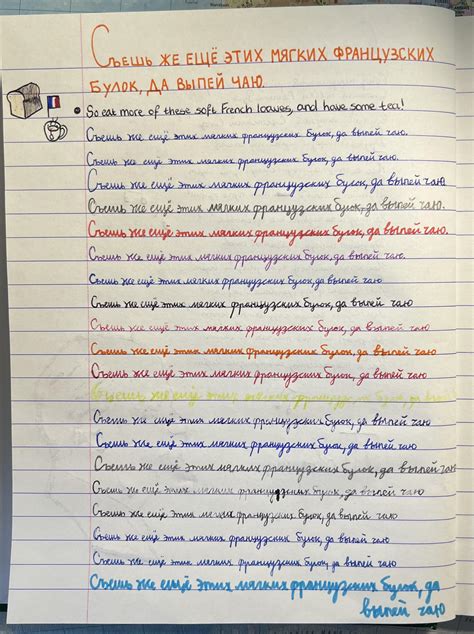 Съешь же ещё этих мягких французских
булок, да выпей чаю.
So eat more of these soft French loaves, and have some tea!
Съешь же ещё этих мягких французских булок, да выпей чаю.
Съешь же ещё этих мягких французских булок, да выпей чаю.
Съешь же ещё этих мягких французских булок, да выпей чаю
Съешь же ещё этих мягких французских булок, да выпей чаю.
Съешь же ещё этих мягких французских булок, да выпей чаю.
Съешь же ещё этих мягких французских булок, да выпей чаю.
Съешь же ещё этих мягких французских булок, да выпей чаю
Съешь же ещё этих мягких французских булок, да выпей чаю
Съешь же ещё этих мягких французских булок, да выпей чаю
Съешь же ещё этих мягких французских булок, да выпей чаю
Съешь же ещё этих мягких французских булок, да выпей чаю
Съешь же ещё этих мягких французских булок, да выпей чаю
Съешь же ещё этих мягких французских булок, да выпей чаю
Съешь же ещё этих мягких французских булок, да выпей чаю
Съешь же ещё этих мягких французских булок, да выпей чаю
Съешь же ещё этих мягких французских булок, да выпей чаю
Съешь же ещё этих мягких французских булок, да выпей чаю
Съешь же ещё этих мягких французских булок, да выпей чаю
Съешь же ещё этих мягких французских булок, да выпей чаю
Съешь же ещё этих мягких французских булок, да
выпей чаю